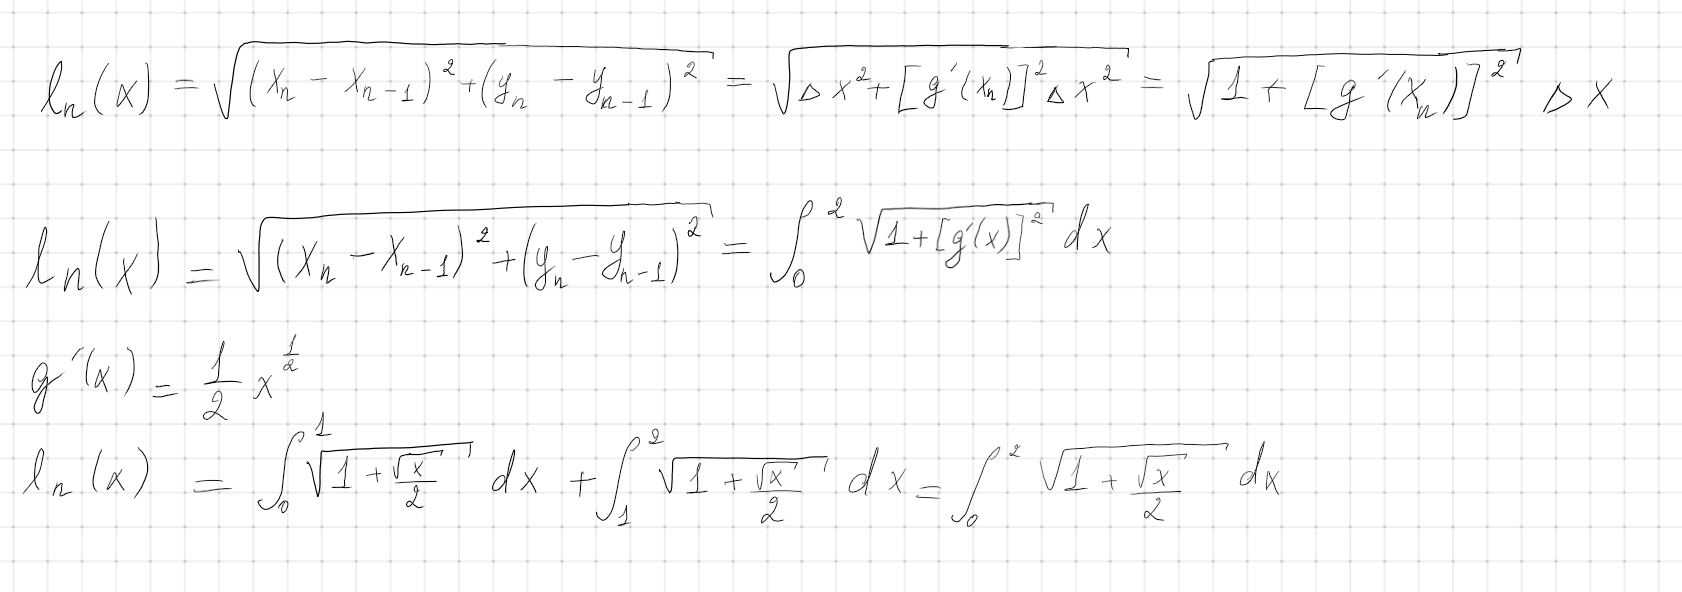 lₙ(x) = √((xₙ − xₙ₋₁)² + (yₙ − yₙ₋₁)²) = √(Δx² + [g′(xₙ)]² Δx²) = √(1 + [g′(xₙ)]²) Δx
lₙ(x) = √((xₙ − xₙ₋₁)² + (yₙ − yₙ₋₁)²) = ∫₀² √(1 + [g′(x)]²) dx
g′(x) = 1/2 x^(1/2)
lₙ(x) = ∫₀¹ √(1 + √x/2) dx + ∫₁² √(1 + √x/2) dx = ∫₀² √(1 + √x/2) dx